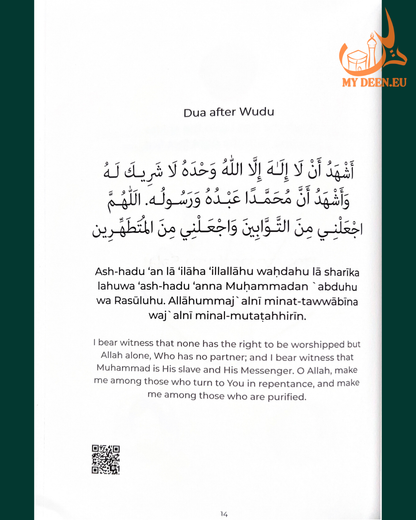 MY DEEN.EU
Dua after Wudu
أَشْهَدُ أَنْ لَا إِلَـٰهَ إِلَّا اللهُ وَحْدَهُ لَا شَرِيكَ لَهُ
وَأَشْهَدُ أَنَّ مُحَمَّدًا عَبْدُهُ وَرَسُولُه. اللَهُمَّ
اجْعَلْنِي مِنَ التَّوَّابِينَ وَاجْعَلْنِي مِنَ المُتَطَهِّرِين
Ash-hadu ‘an lā ‘ilāha ‘illallāhu waḥdahu lā sharīka
lahuwa ‘ash-hadu ‘anna Muḥammadan `abduhu
wa Rasūluhu. Allāhummaj`alnī minat-tawwābīna
waj`alnī minal-mutaṭahhirīn.
I bear witness that none has the right to be worshipped but
Allah alone, Who has no partner; and I bear witness that
Muhammad is His slave and His Messenger. O Allah, make
me among those who turn to You in repentance, and make
me among those who are purified.
14